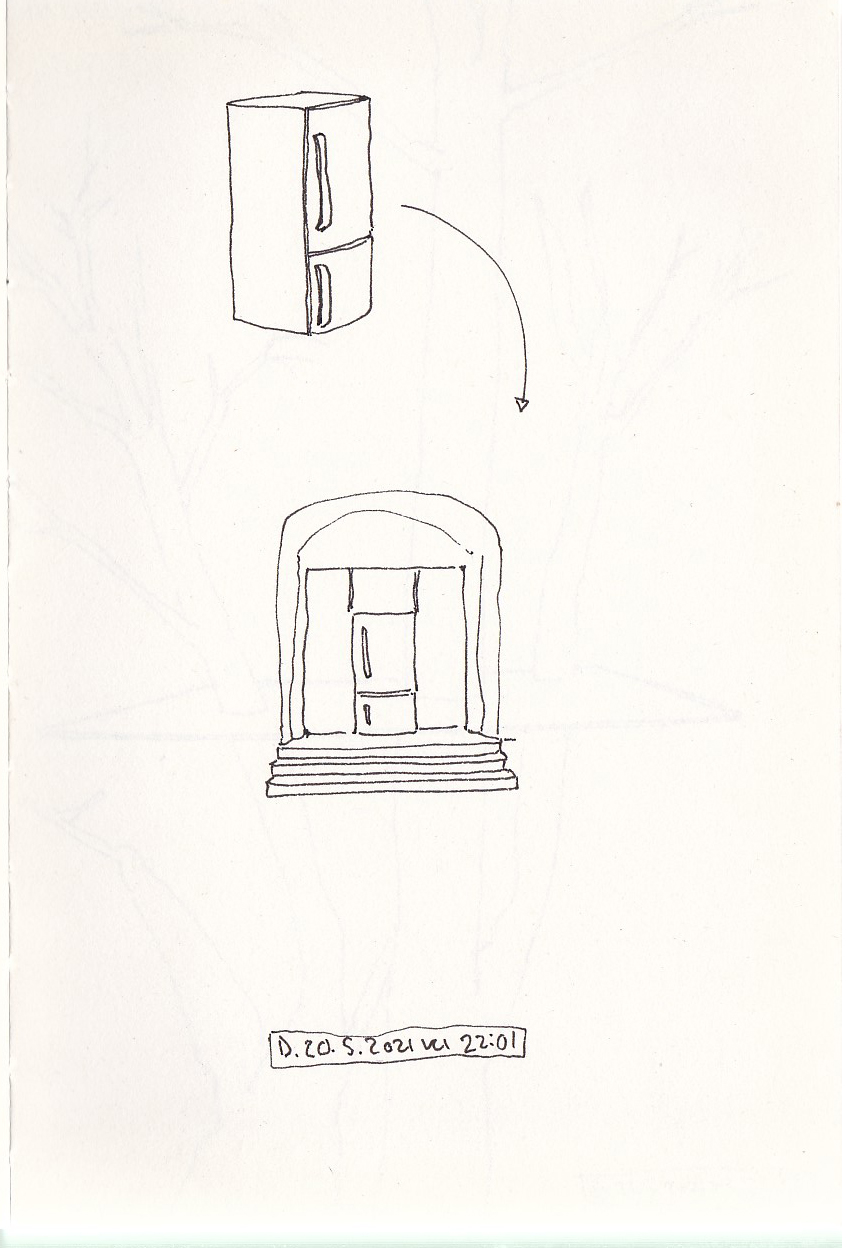 D. 20. 5. 2021 vu 22:01